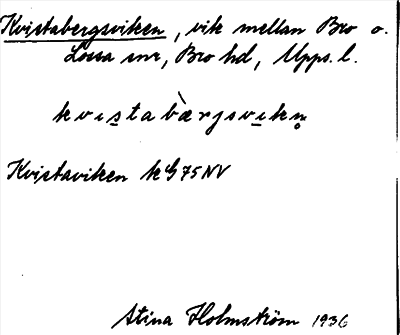 Kvistabergsviken, vik mellan Bro o.
Lossa snr, Bro hd, Upps. l.
kvistabàrgsvikn̥
Kvistaviken kG 75 NV
Stina Holmström 1936